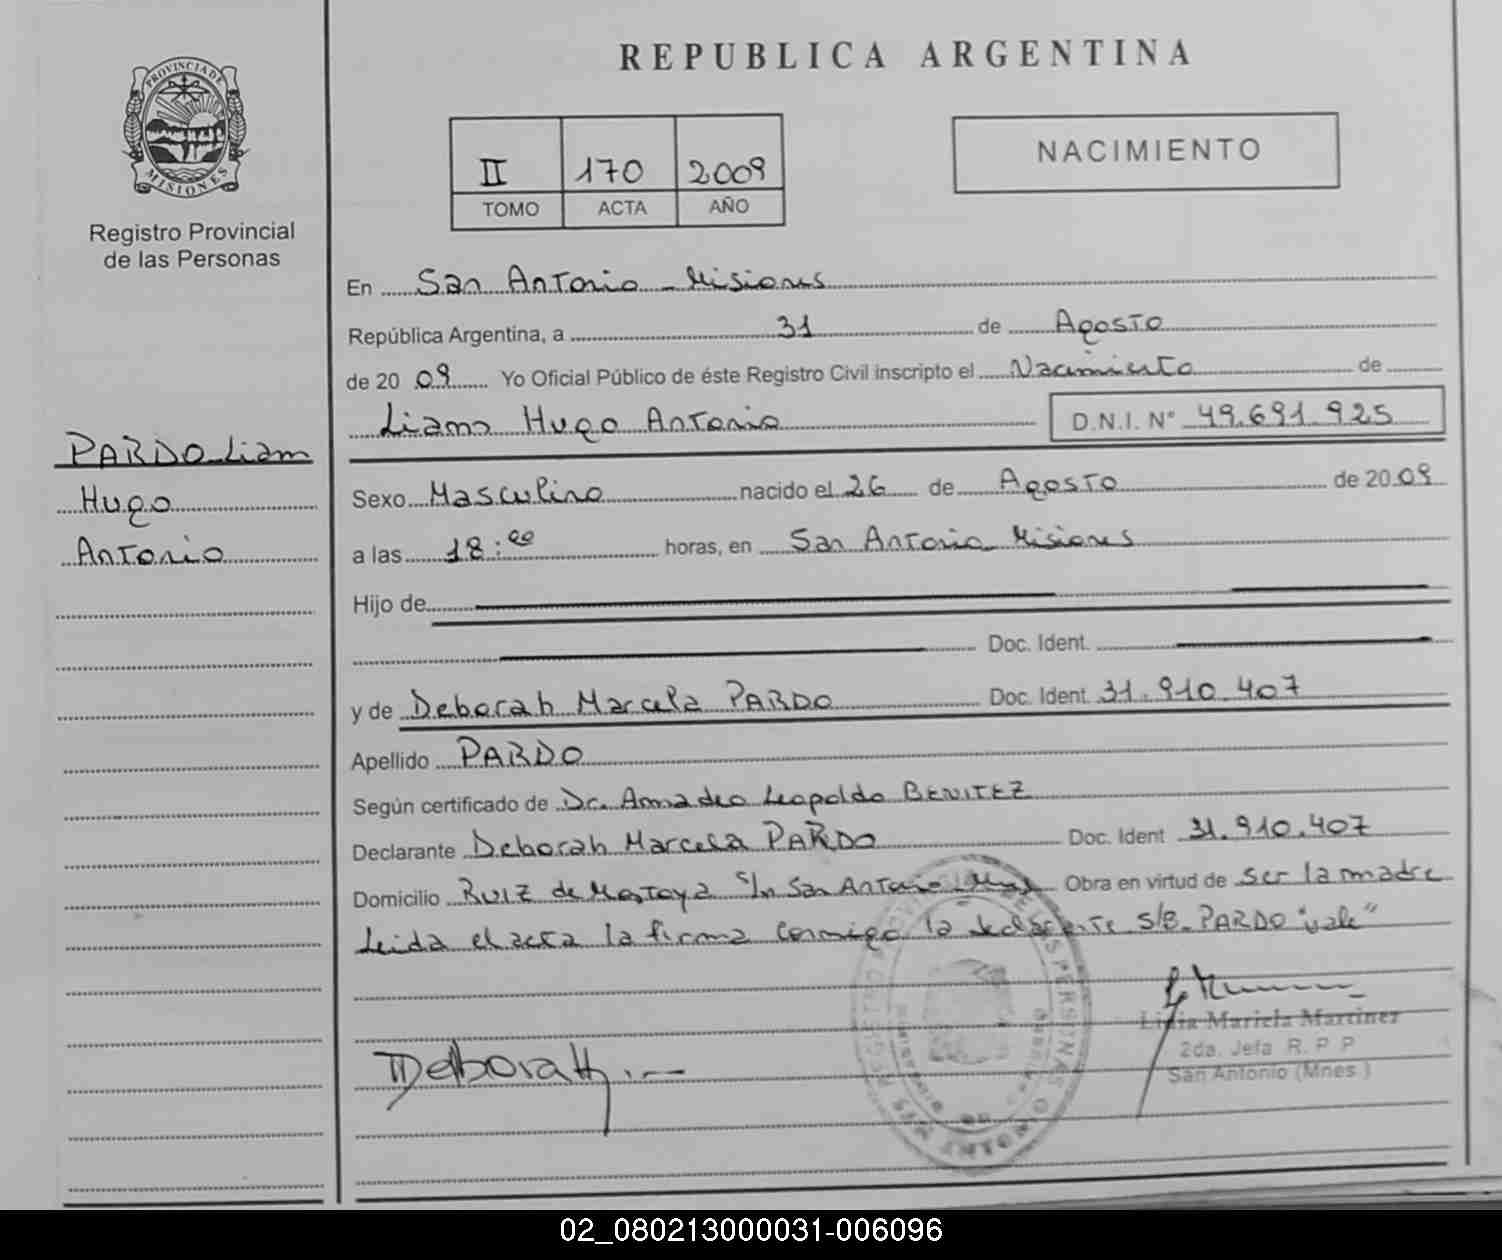 REPUBLICA ARGENTINA
PROVINCIA DE
MISIONES
Registro Provincial
de las Personas
II 170 2009
TOMO ACTA AÑO
NACIMIENTO
En San Antonio - Misiones
República Argentina, a 31 de Agosto
de 20 09 Yo Oficial Público de éste Registro Civil inscripto el Nacimiento de
Liam Hugo Antonio D.N.I. N° 49.691.925
PARDO Liam
Hugo
Antonio
Sexo Masculino nacido el 26 de Agosto de 20 09
a las 18:00 horas, en San Antonio Misiones
Hijo de
Doc. Ident.
y de Deborah Marcela PARDO Doc. Ident. 31.910.407
Apellido PARDO
Según certificado de Dr. Amadeo Leopoldo BENITEZ
Declarante Deborah Marcela PARDO Doc. Ident 31.910.407
Domicilio Ruiz de Montoya S/n San Antonio Mnes Obra en virtud de ser la madre
Leida el acta la firma conmigo la declarante S/B. PARDO "vale"
Deborah
Lidia Mariela Martinez
2da. Jefa R. P. P
San Antonio (Mnes.)
SAN ANTONIO
02_080213000031-006096